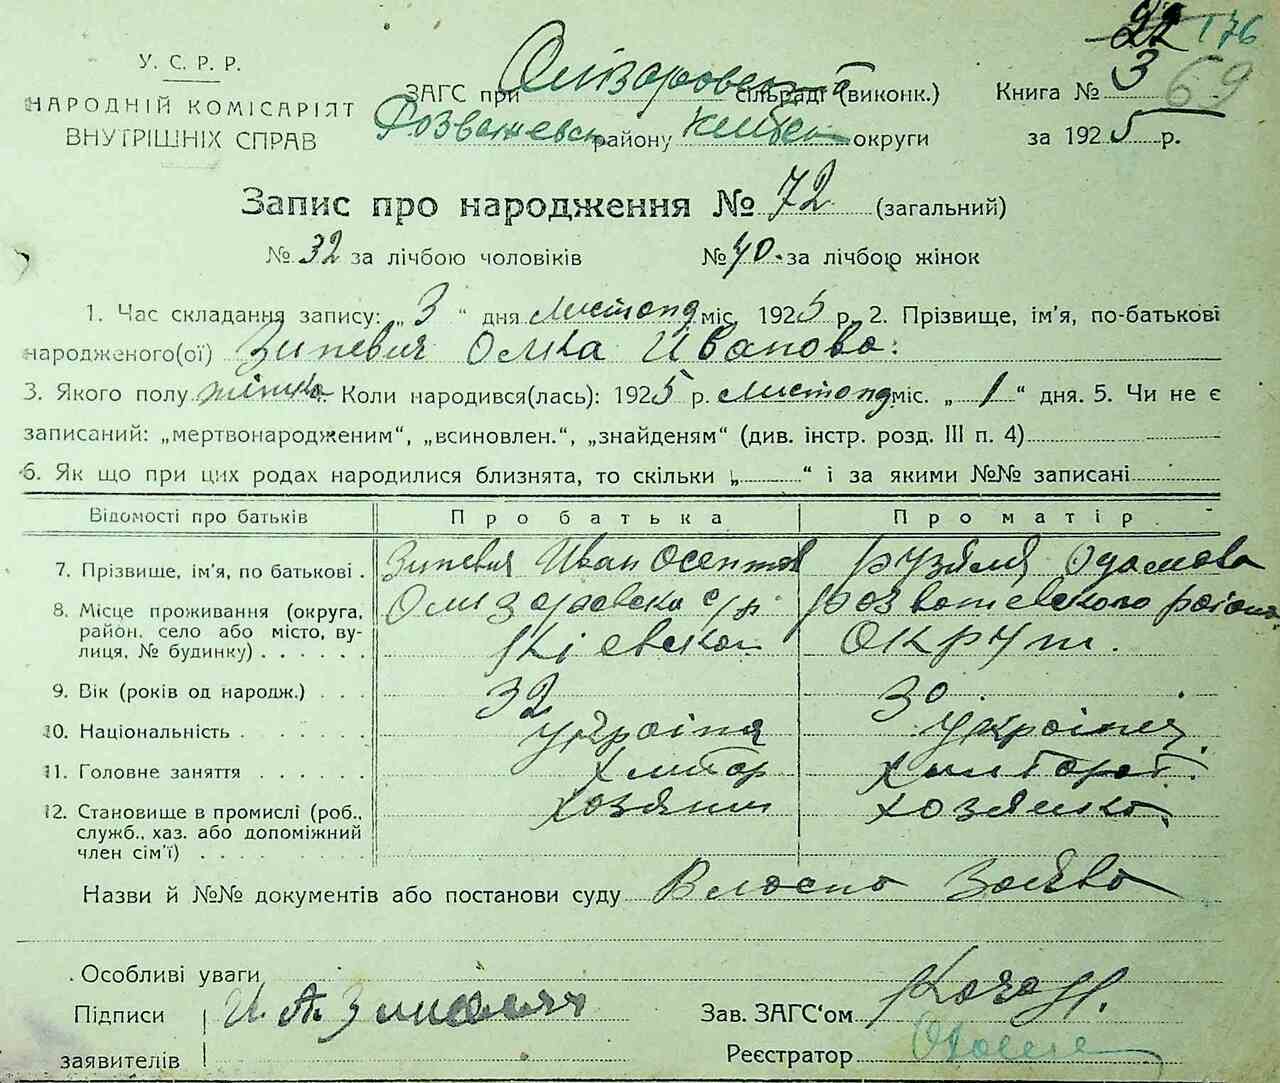 22 176
У. С. Р. Р.
НАРОДНІЙ КОМІСАРІЯТ
ВНУТРІШНІХ СПРАВ
ЗАГС при сільраді (виконк.) Книга № 3 69
району округи за 1925 р.
Запис про народження № 72 (загальний)
№ 32 за лічбою чоловіків № 40 за лічбою жінок
1. Час складання запису: „ 3 “ дня листопад міс. 1925 р. 2. Прізвище, ім'я, по-батькові
народженого(ої) Зиневич Олика Иванова
3. Якого полу жінка. Коли народився(лась): 1925 р. листопад міс. „ 1 “ дня. 5. Чи не є
записаний: „мертвонародженим“, „всиновлен.“, „знайденям“ (див. інстр. розд. III п. 4)
6. Як що при цих родах народилися близнята, то скільки „ “ і за якими №№ записані
Відомості про батьків Про батька Про матір
7. Прізвище, ім'я, по батькові . Зиневич Иван Адамова
8. Місце проживання (округа,
район, село або місто, ву-
лиця, № будинку) . . . . . . Кіевской округи.
9. Вік (років од народж.) . . . 32 30
10. Національність . . . . . . Україн Україн
11. Головне заняття . . . . . .
12. Становище в промислі (роб.,
служб., хаз. або допоміжний
член сім'ї) . . . . . . . . хозяин хозяйка
Назви й №№ документів або постанови суду Власна Заява
Особливі уваги
Підписи Зав. ЗАГС'ом
заявителів Реєстратор